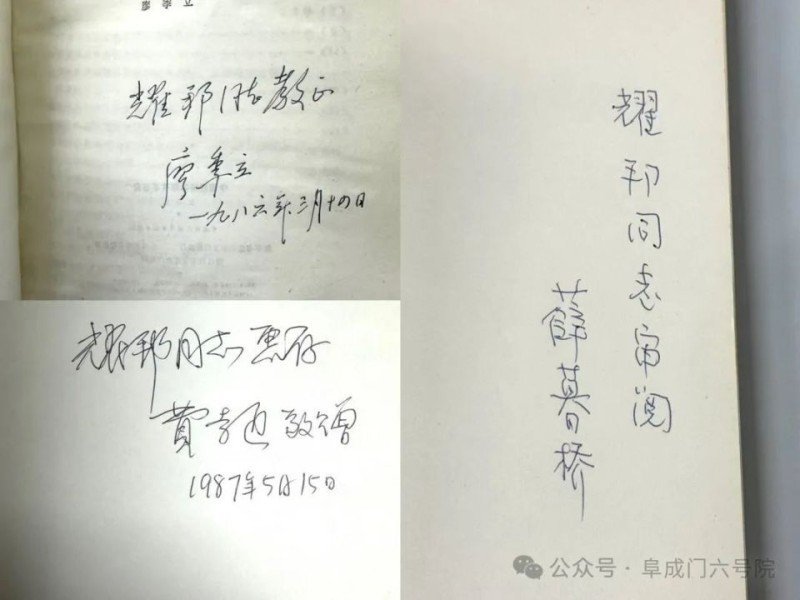 耀邦同志教正
廖季立
一九八六年三月十四日
耀邦同志惠存
费孝通敬赠
1987年5月15日
耀邦同志审阅
薛暮桥
公众号·阜成门六号院